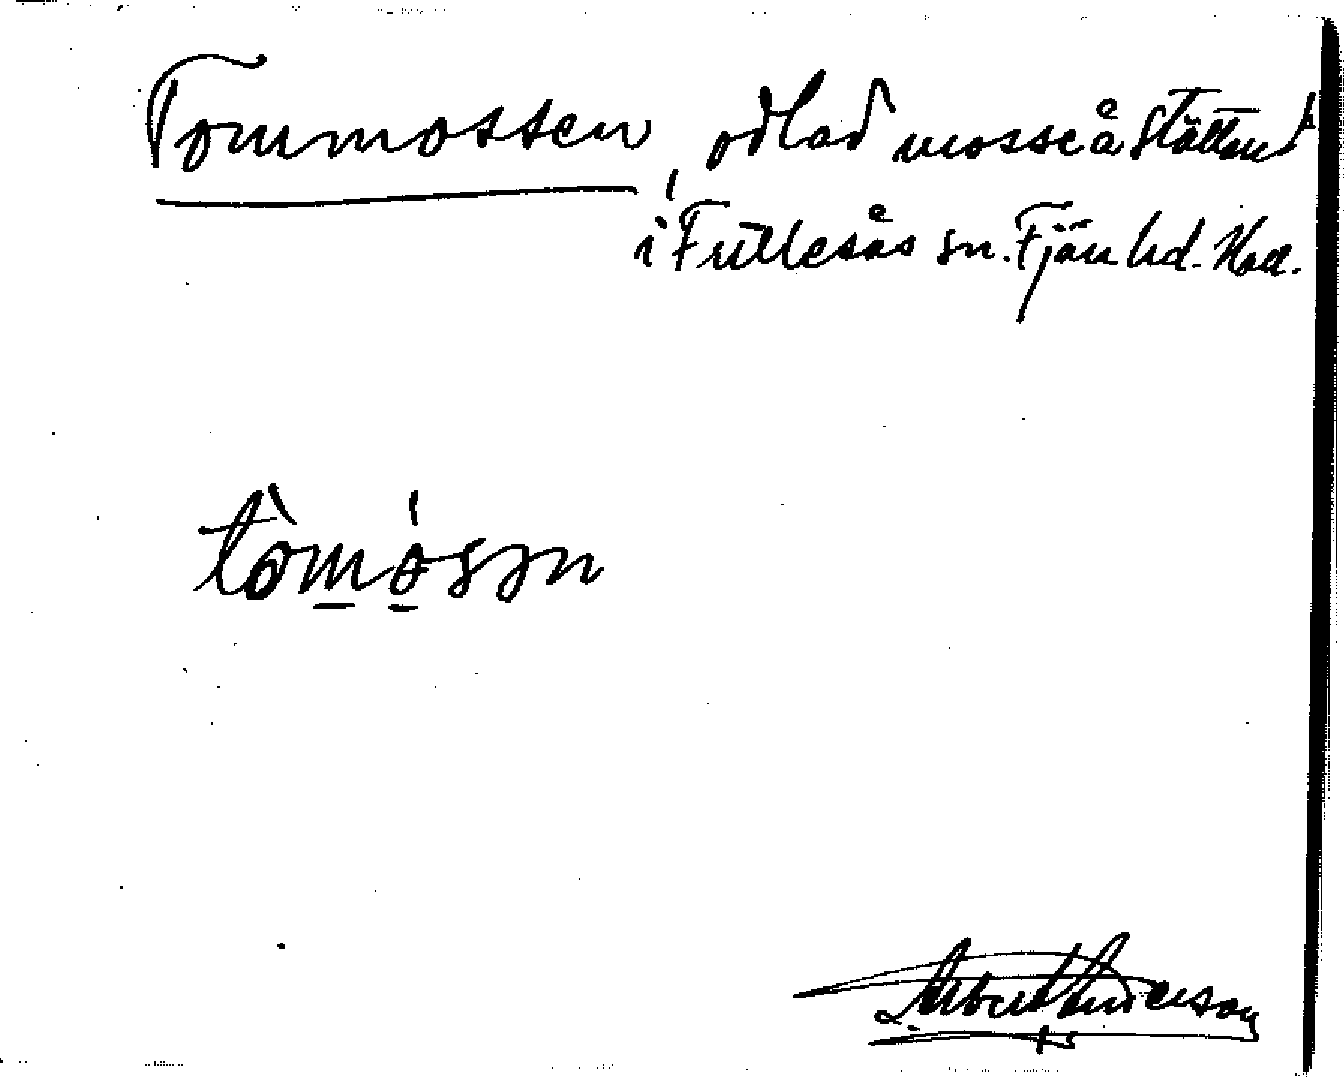 Tommossen, odlad mosse å Stätten
i Furlesås sn. Fjäre hd. Hall.
tòmósən
Albert Anderson